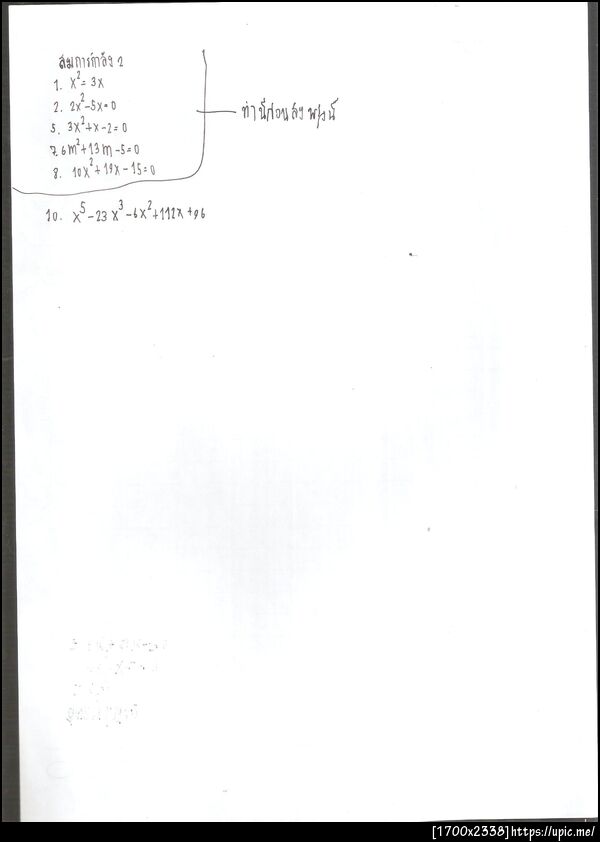 สมการกำลัง 2
1. x²= 3x
2. 2x²-5x=0
5. 3x²+x-2=0
7. 6m²+13m-5=0
8. 10x²+19x-15=0
ทำนี่ก่อนส่ง
10. x⁵-23x³-6x²+112x+96
[1700x2338]https://upic.me/